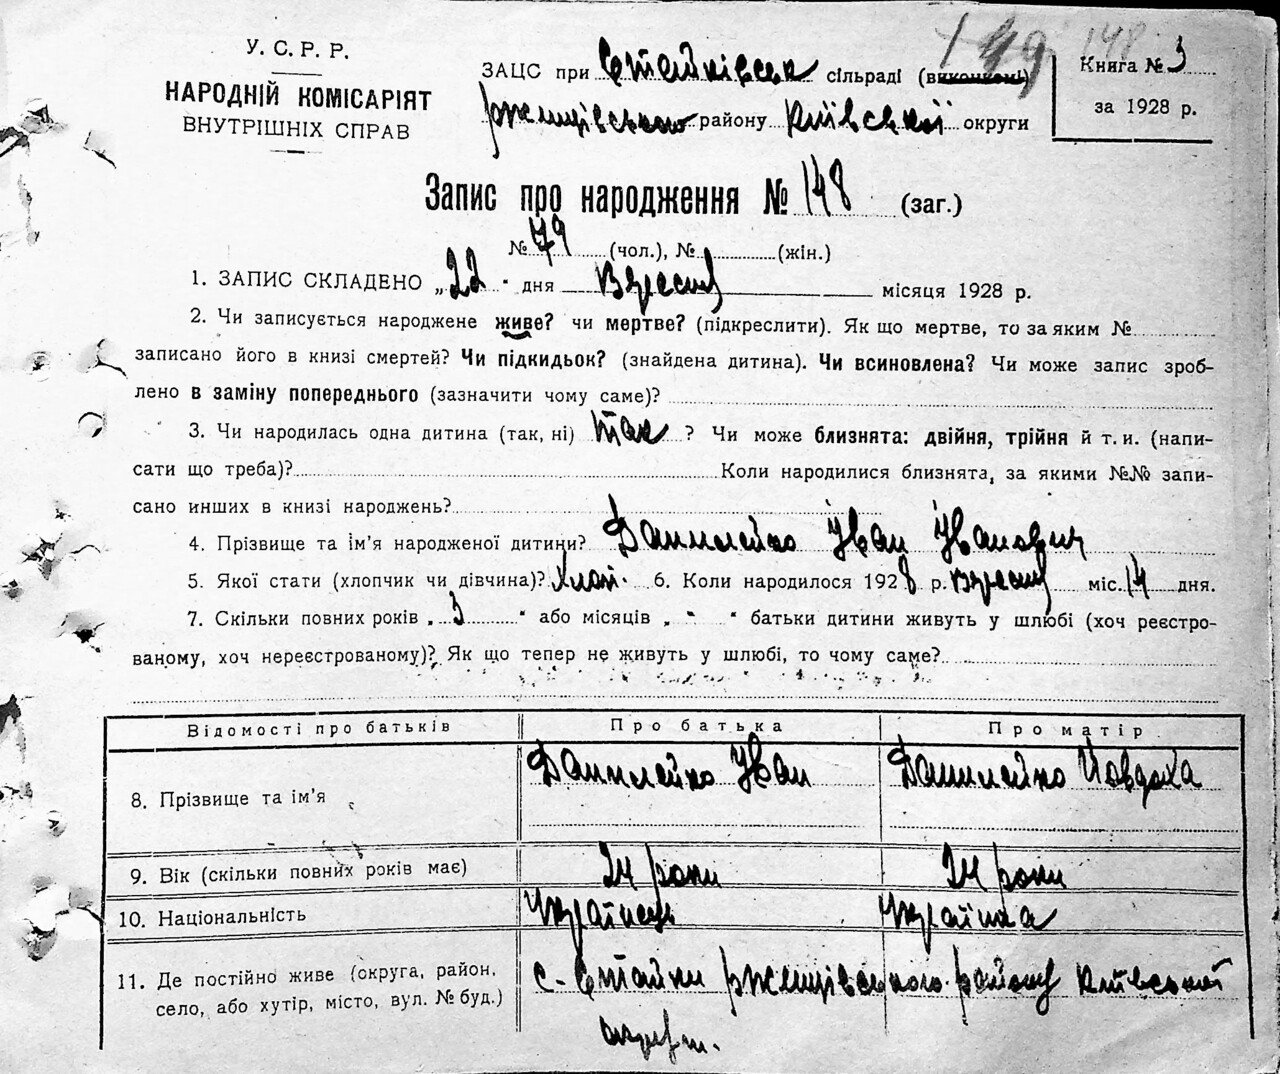 149 148
У. С. Р. Р.
НАРОДНІЙ КОМІСАРІЯТ
ВНУТРІШНІХ СПРАВ
ЗАЦС при Стайківськ сільраді (виконкомі)
Ржищівського району Київської округи
Книга № 3
за 1928 р.
Запис про народження № 148 (заг.)
№ 79 (чол.), № (жін.)
1. ЗАПИС СКЛАДЕНО „22" дня Вересня місяця 1928 р.
2. Чи записується народжене живе? чи мертве? (підкреслити). Як що мертве, то за яким №
записано його в книзі смертей? Чи підкидьок? (знайдена дитина). Чи всиновлена? Чи може запис зроб-
лено в заміну попереднього (зазначити чому саме)?
3. Чи народилась одна дитина (так, ні) так ? Чи може близнята: двійня, трійня й т. и. (напи-
сати що треба)? Коли народилися близнята, за якими №№ запи-
сано инших в книзі народжень?
4. Прізвище та ім'я народженої дитини? Данилейко Іван Іванович
5. Якої стати (хлопчик чи дівчина)? Хлоп. 6. Коли народилося 1928 р. Вересня міс. 14 дня.
7. Скільки повних років „ 3 " або місяців „ - " батьки дитини живуть у шлюбі (хоч реєстро-
ваному, хоч нереєстрованому)? Як що тепер не живуть у шлюбі, то чому саме?
Відомості про батьків Про батька Про матір
8. Прізвище та ім'я Данилейко Іван Данилейко Йовдоха
9. Вік (скільки повних років має) 24 роки 24 роки
10. Національність Українець Українка
11. Де постійно живе (округа, район, село, або хутір, місто, вул. № буд.) с. Стайки Ржищівського району Київської
округи.